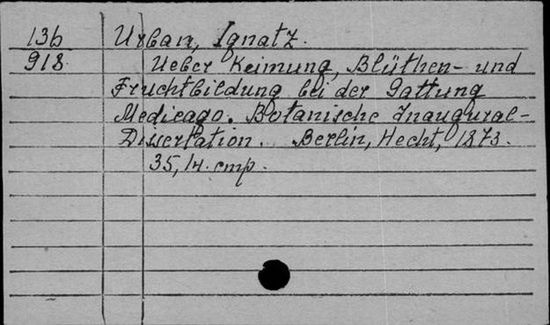 136 Urban, Ignatz.
918. Ueber Keimung, Blüthen- und
Fruchtbildung bei der Gattung
Medicago. Botanische Inaugural-
Dissertation. Berlin, Hecht, 1873.
35, 14. стр.